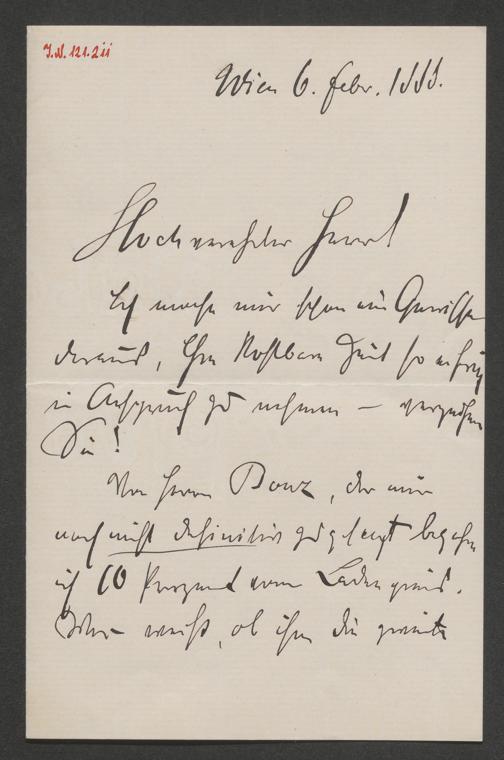 J.N. 121.211
Wien 6. Febr. 1888.
Hochverehrter Herr!
Ich mache mir schon ein Gewissen
daraus, Ihre kostbare Zeit so
in Anspruch zu nehmen – verzeihen
Sie!
Von Herrn Bonz, der mir
noch nicht definitiv zugesagt begehre
ich 10 Prozent vom Ladenpreis.
Wer weiß, ob ihm die zweite